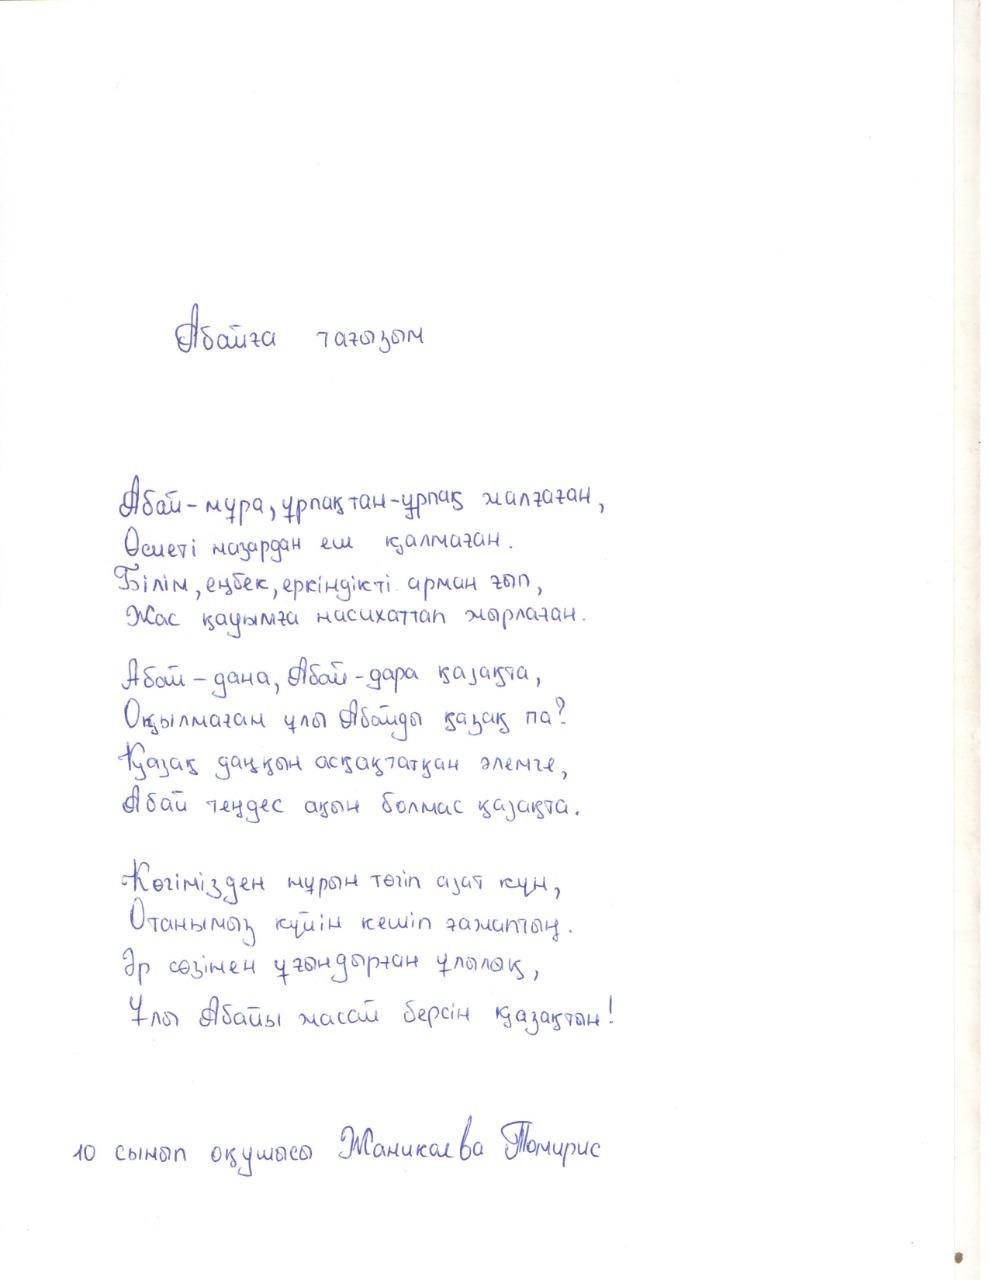 Абайға тағызым
Абай-мұра, ұрпақтан-ұрпақ жалғаған,
Өсиеті назардан еш қалмаған.
Білім, еңбек, еркіндікті арман ғып,
Жас қауымға насихаттап жырлаған.
Абай-дана, Абай-дара қазақта,
Оқылмаған ұлы Абайды қазақ па?
Қазақ даңқын асқақтатқан әлемге,
Абай теңдес ақын болмас қазақта.
Көгімізден нұрын төгіп азат күн,
Отанымыз күйін кешіп ғажаптың.
Әр сөзінен ұғындырған ұлылық,
Ұлы Абайы жасай берсін қазақтын!
10 сынып оқушысы Жаникаева Томирис